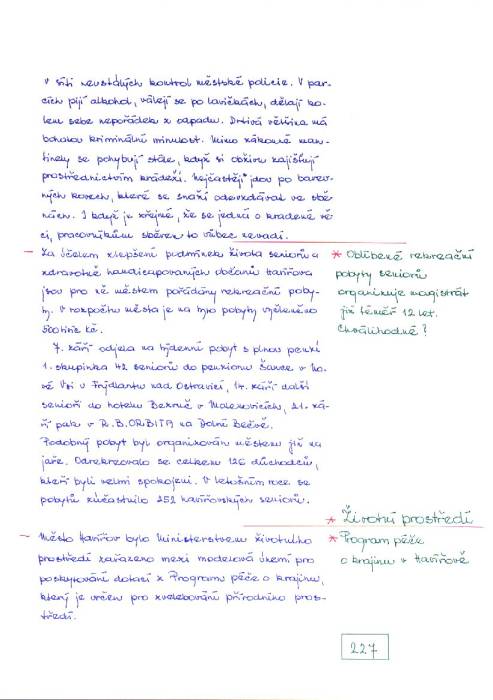 v síti neustálých kontrol městské policie. V par-
cích pijí alkohol, válejí se po lavičkách, dělají ko-
lem sebe nepořádek z odpadu. Drtivá většina má
bohatou kriminální minulost. Mimo zákonné man-
tinely se pohybují stále, když si obživu zajišťují
prostřednictvím krádeží. Nejčastěji jdou po barev-
ných kovech, které se snaží odevzdávat ve sběr-
nách. I když je zřejmé, že se jedná o kradené vě-
ci, pracovníkům sběren to vůbec nevadí.
– Za účelem zlepšení podmínek života seniorů a
zdravotně handicapovaných občanů Havířova
jsou pro ně městem pořádány rekreační poby-
ty. V rozpočtu města je na tyto pobyty vyčleněno
500 tisíc Kč.
7. září odjela na týdenní pobyt s plnou penzí
1. skupinka 42 seniorů do penzionu Šance v No-
vé Vsi u Frýdlantu nad Ostravicí, 14. září další
senioři do hotelu Bezruč v Malenovicích, 21. zá-
ří pak v R.B. ORBITA na Dolní Bečvě.
Podobný pobyt byl organizován městem již na
jaře. Odrekreovalo se celkem 126 důchodců,
kteří byli velmi spokojeni. V letošním roce se
pobytů zúčastnilo 252 havířovských seniorů.
– Město Havířov bylo Ministerstvem životního
prostředí zařazeno mezi modelová území pro
poskytování dotací z Programu péče o krajinu,
který je určen pro zvelebování přírodního pros-
tředí.
* Oblíbené rekreační
pobyty seniorů
organizuje magistrát
již téměř 12 let.
Chvályhodné?
* Životní prostředí
* Program péče
o krajinu v Havířově
227